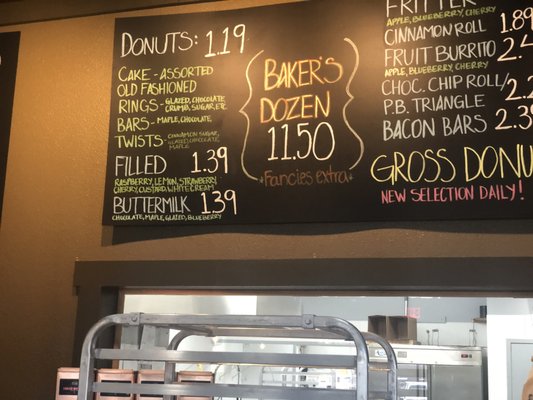 DONUTS: 1.19
CAKE - ASSORTED
OLD FASHIONED
RINGS - GLAZED, CHOCOLATE
CRUMB, SUGAR, ETC
BARS - MAPLE, CHOCOLATE
TWISTS - CINNAMON SUGAR,
GLAZED, CHOCOLATE,
MAPLE
FILLED 1.39
RASPBERRY, LEMON, STRAWBERRY
CHERRY, CUSTARD, WHITE CREAM
BUTTERMILK 1.39
CHOCOLATE, MAPLE, GLAZED, BLUEBERRY
BAKER'S
DOZEN
11.50
*Fancies extra*
FRITTER
APPLE, BLUEBERRY, CHERRY
CINNAMON ROLL 1.89
FRUIT BURRITO 2.4
APPLE, BLUEBERRY, CHERRY
CHOC. CHIP ROLL/ 2.2
P.B. TRIANGLE
BACON BARS 2.39
GROSS DONU
NEW SELECTION DAILY!